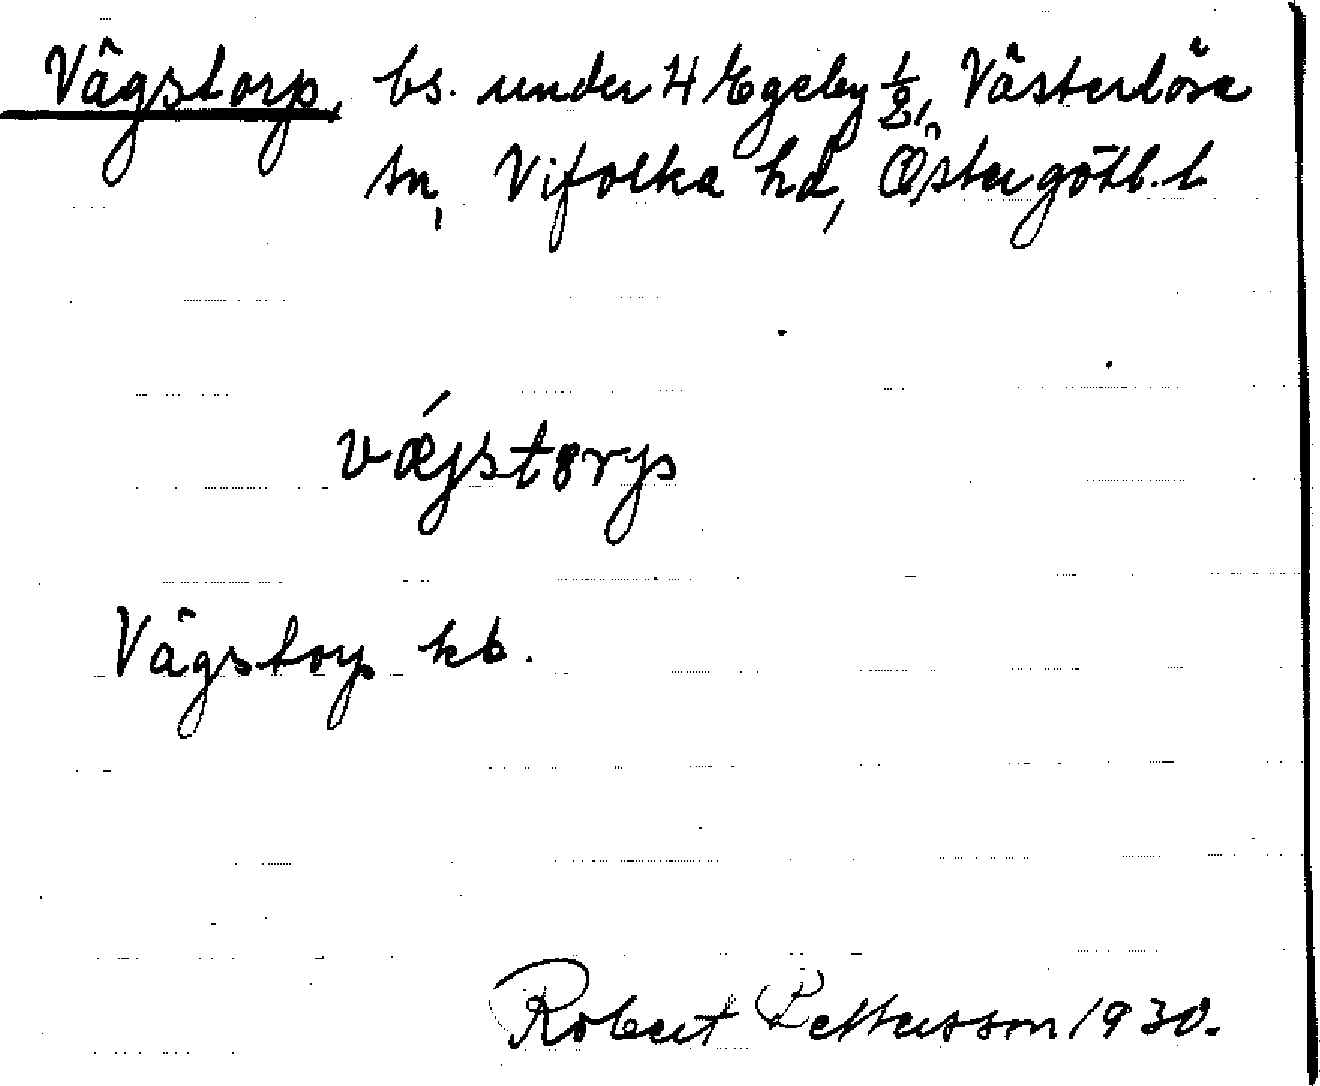 Vägstorp, bs. under 4 Egeby ½, Västerlösa
sn, Vifolka hd, Östergötl. l.
vǽjstɵrp
Vägstorp kb.
Robert Pettersson 1930.